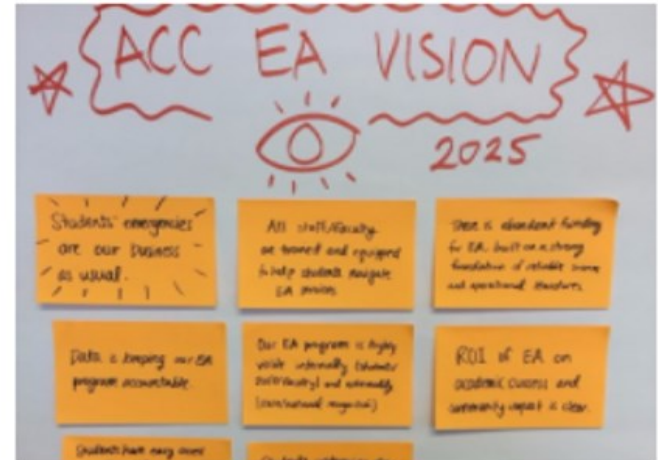 ACC EA VISION
2025
Students' emergencies
are our business
as usual.
All staff/faculty
are trained and equipped
to help students navigate
EA services
There is abundant funding
for EA, built on a strong
foundation of reliable
and operational structures.
Data is keeping our EA
program accountable.
Our EA program is highly
visible internally (students/
staff/faculty) and externally
(state/national recognition)
ROI of EA on
academic success and
community impact is clear.
Students have easy access
Students